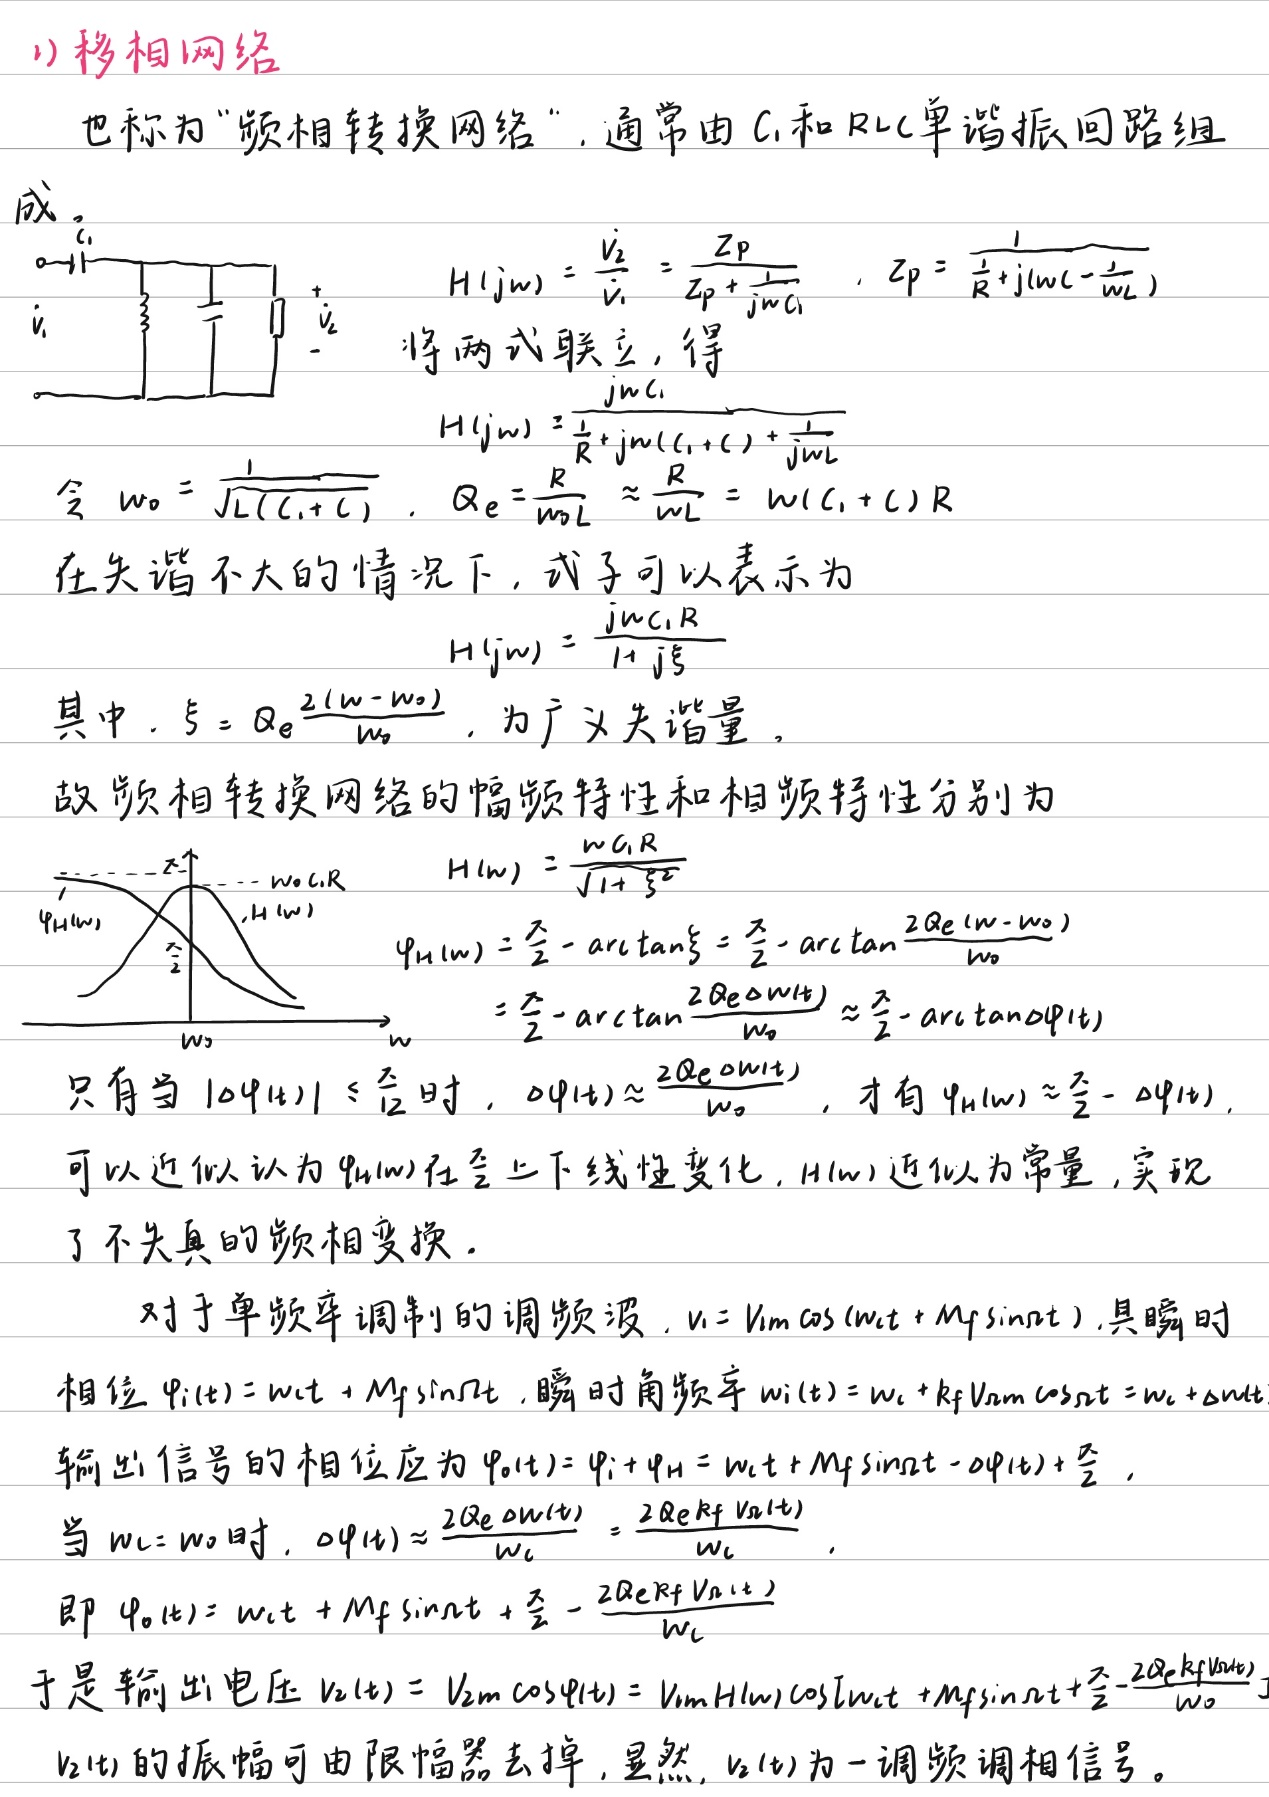 1) 移相网络
也称为“频相转换网络”,通常由 C₁ 和 RLC 单谐振回路组
成。
C₁
H(jw) = V̇₂/V̇₁ = Zp/(Zp + 1/(jwC₁)) , Zp = 1/(1/R + j(wC - 1/(wL)))
V̇₁ + V̇₂ -
将两式联立,得
H(jw) = jwC₁/(1/R + jw(C₁+C) + 1/(jwL))
令 w₀ = 1/√(L(C₁+C)) , Qe = R/(w₀L) ≈ R/(wL) = w(C₁+C)R
在失谐不大的情况下,式子可以表示为
H(jw) = jwC₁R/(1+jξ)
其中, ξ = Qe 2(w-w₀)/w₀ , 为广义失谐量。
故频相转换网络的幅频特性和相频特性分别为
H(w) = wC₁R/√(1+ξ²)
π w₀C₁R
φH(w) H(w)
φH(w) = π/2 - arctanξ = π/2 - arctan 2Qe(w-w₀)/w₀
π/2
= π/2 - arctan 2QeΔw(t)/w₀ ≈ π/2 - arctanΔφ(t)
w₀ w
只有当 |Δφ(t)| ≤ π/12 时, Δφ(t) ≈ 2QeΔw(t)/w₀ , 才有 φH(w) ≈ π/2 - Δφ(t),
可以近似认为 φH(w) 在 π/2 上下线性变化, H(w) 近似为常量,实现
了不失真的频相变换。
对于单频率调制的调频波, v₁ = V₁m cos(wct + Mf sinΩt),其瞬时
相位 φi(t) = wct + Mf sinΩt ,瞬时角频率 wi(t) = wc + kf VΩm cosΩt = wc + Δw(t)
输出信号的相位应为 φ₀(t) = φi + φH = wct + Mf sinΩt - Δφ(t) + π/2 ,
当 wc = w₀ 时, Δφ(t) ≈ 2QeΔw(t)/wc = 2Qe kf VΩ(t)/wc ,
即 φ₀(t) = wct + Mf sinΩt + π/2 - 2Qe kf VΩ(t)/wc
于是输出电压 v₂(t) = V₂m cosφ(t) = V₁m H(w) cos[wct + Mf sinΩt + π/2 - 2Qe kf VΩ(t)/w₀]
v₂(t) 的振幅可由限幅器去掉,显然, v₂(t) 为一调频调相信号。